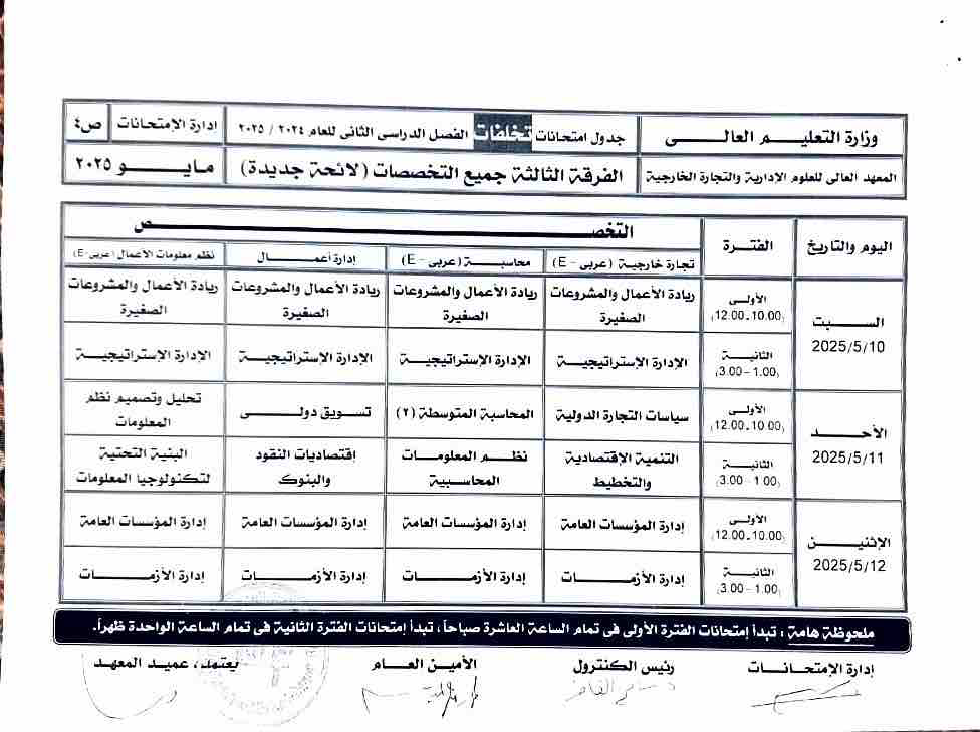 وزارة التعليم العالى
جدول امتحانات تخلفات الفصل الدراسى الثانى للعام ٢٠٢٤ / ٢٠٢٥
إدارة الإمتحانات
ص٤
المعهد العالى للعلوم الإدارية والتجارة الخارجية
الفرقة الثالثة جميع التخصصات (لائحة جديدة)
مايو ٢٠٢٥
اليوم والتاريخ
الفترة
التخصص
تجارة خارجية (عربى - E)
محاسبة (عربى - E)
إدارة أعمال
نظم معلومات الأعمال (عربى-E)
السبت
2025/5/10
الأولى
(12.00-10.00)
ريادة الأعمال والمشروعات
الصغيرة
ريادة الأعمال والمشروعات
الصغيرة
ريادة الأعمال والمشروعات
الصغيرة
ريادة الأعمال والمشروعات
الصغيرة
الثانية
(3.00-1.00)
الإدارة الإستراتيجية
الإدارة الإستراتيجية
الإدارة الإستراتيجية
الإدارة الإستراتيجية
الأحد
2025/5/11
الأولى
(12.00-10.00)
سياسات التجارة الدولية
المحاسبة المتوسطة (٢)
تسويق دولى
تحليل وتصميم نظم
المعلومات
الثانية
(3.00-1.00)
التنمية الإقتصادية
والتخطيط
نظم المعلومات
المحاسبية
إقتصاديات النقود
والبنوك
البنية التحتية
لتكنولوجيا المعلومات
الإثنين
2025/5/12
الأولى
(12.00-10.00)
إدارة المؤسسات العامة
إدارة المؤسسات العامة
إدارة المؤسسات العامة
إدارة المؤسسات العامة
الثانية
(3.00-1.00)
إدارة الأزمات
إدارة الأزمات
إدارة الأزمات
إدارة الأزمات
ملحوظة هامة : تبدأ إمتحانات الفترة الأولى فى تمام الساعة العاشرة صباحاً، تبدأ إمتحانات الفترة الثانية فى تمام الساعة الواحدة ظهراً.
إدارة الإمتحانات
رئيس الكنترول
الأمين العام
يعتمد، عميد المعهد